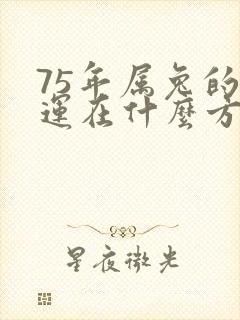 75年属兔的
運在什麼方
星夜微光